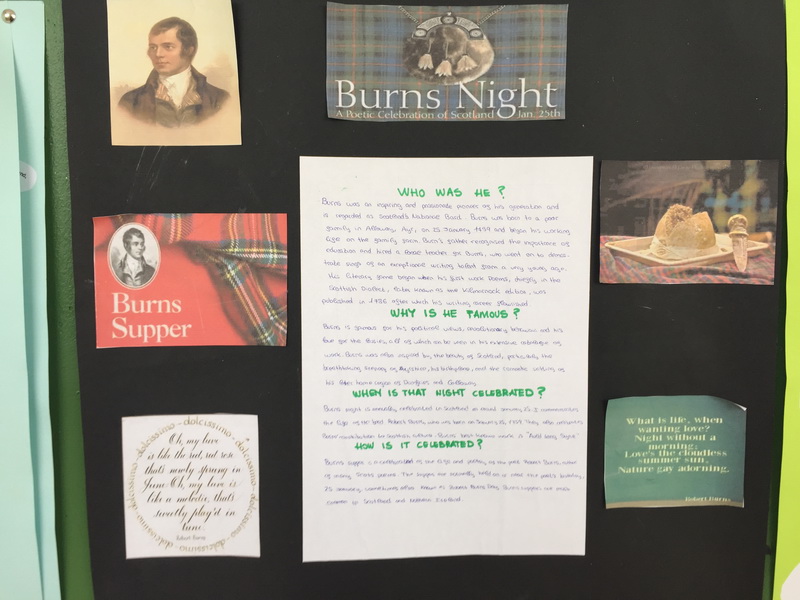 Burns Night
A Poetic Celebration of Scotland Jan. 25th
Burns
Supper
dolcissimo dolcissimo dolcissimo dolcissimo
Oh, my love
is like the red, red rose
that's newly sprung in
June. Oh, my love is
like a melodie, that's
sweetly play'd in
tune.
Robert Burns
WHO WAS HE?
Burns was an inspiring and passionate pioneer of his generation and
is regarded as Scotland's National Bard. Burns was born to a poor
family in Alloway, Ayr, on 25 January 1759 and began his working
life on the family farm. Burn's father recognised the importance of
education and hired a teacher for Burns, who went on to
signs of an writing talent from a very young age.
His literary fame began when his first work Poems, in the
Scottish Dialect, known as the Kilmarnock edition, was
published in 1786 after which his writing career flourished
WHY IS HE FAMOUS?
Burns is famous for his political views, revolutionary behaviour and his
love for the , all of which can be seen in his extensive of
work. Burns was also inspired by the beauty of Scotland, the
scenery of Ayrshire, his birthplace, and the
his later home of Dumfries and Galloway
WHEN IS THAT NIGHT CELEBRATED?
Burns night is annually celebrated in Scotland on January 25. It commemorates
the life of the bard Robert Burns, who was born on January 25, 1759. They also
Burns contribution to Scottish culture. Burns' best known work is "Auld Lang Syne".
HOW IS IT CELEBRATED?
Burns supper is a celebration of the life and poetry of the poet Robert Burns, author
of many Scots poems. The suppers are normally held on or near the poet's birthday,
25 January, sometimes also known as Robert Burns Day. Burns suppers are most
common in Scotland and
What is life, when
wanting love?
Night without a
morning.
Love's the cloudless
summer sun,
Nature gay adorning.
Robert Burns